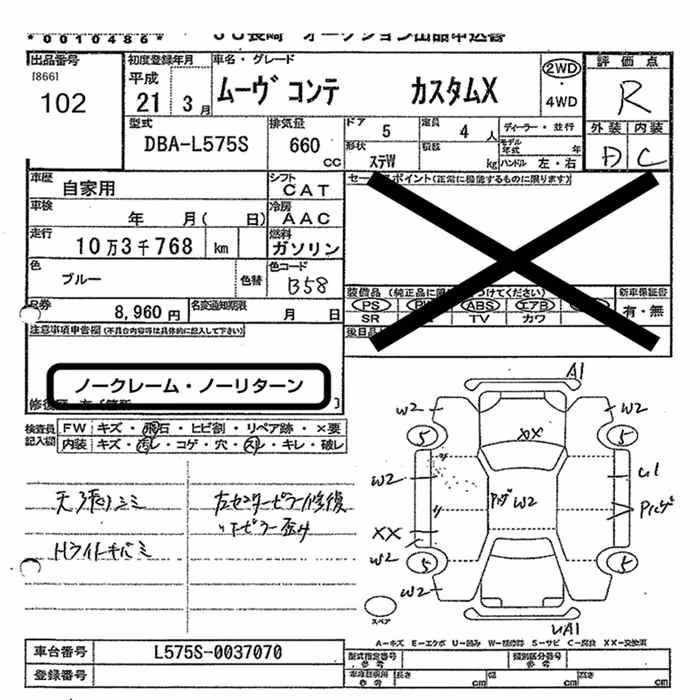 *0010486*
JU長崎 オークション出品申込書
出品番号
[866]
102
初度登録年月
平成
21 3月
車名・グレード
ムーヴ コンテ カスタムX
2WD
・
4WD
評価点
R
外装 内装
D C
型式
DBA-L575S
排気量
660
CC
ドア 5
定員 4 人
ディーラー・並行
形状
ステW
積載
kg
モデル年式 年
ハンドル 左・右
車歴
自家用
シフト
CAT
車検
年 月( 日)
冷房
AAC
走行
10万3千768 km
燃料
ガソリン
色
ブルー
色替
色コード
B58
R券
8,960円
名変通知期限
月 日
セールスポイント(正常に機能するものに限ります)
装備品(純正品に限
つけてください)
PS
ABS
エアB
SR
TV
カワ
新車保証書
有・無
後日品
注意事項申告欄(不具合内容等は具体的に記入して下さい)
ノークレーム・ノーリターン
検査員
記入欄
FW キズ・飛石・ヒビ割・リペア跡・×要
内装 キズ・汚レ・コゲ・穴・スレ・キレ・破レ
天張りシミ
Hライトキバミ
左センターピラー修復
〃Fピラー歪み
A1
W2
W2
5
5
XX
W2
U1
W2
XX
W2
W2
5
5
W2
UA1
スペア
A-キズ E-エクボ U-凹み W-補修跡 S-サビ C-腐食 XX-交換済
車台番号
L575S-0037070
登録番号
型式指定番号
参考
類別区分番号
参考
車庫証明用
参考
長さ
cm
幅
cm
高さ
cm